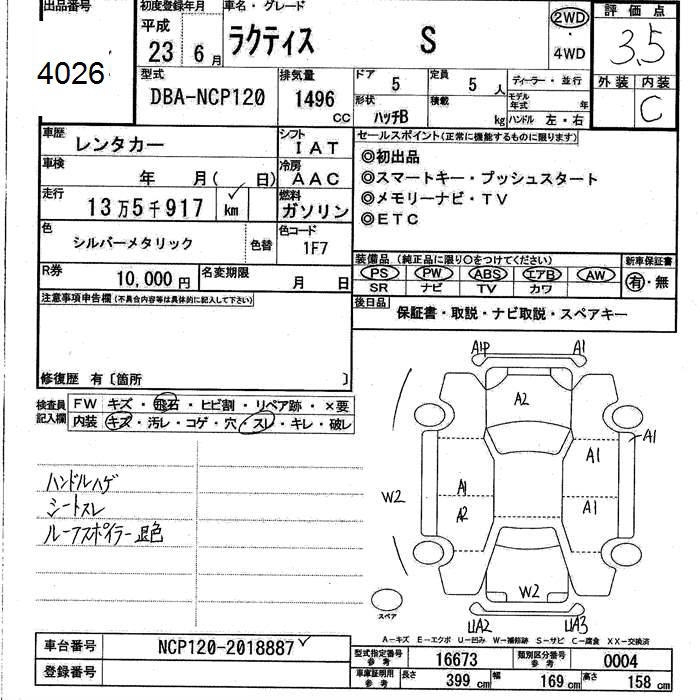 出品番号
4026
初度登録年月
平成
23 6 月
車名・グレード
ラクティス S
2WD
・
4WD
評価点
3.5
外装 内装
C
型式
DBA-NCP120
排気量
1496
CC
ドア 5
定員 5 人
ディーラー・並行
形状
ハッチB
積載 kg
モデル年式 年
ハンドル 左・右
車歴
レンタカー
シフト
IAT
車検
年 月( 日)
冷房
AAC
走行
13万5千917 km
燃料
ガソリン
色
シルバーメタリック
色替
色コード
1F7
R券
10,000円
名変期限
月 日
セールスポイント(正常に機能するものに限ります)
◎初出品
◎スマートキー・プッシュスタート
◎メモリーナビ・TV
◎ETC
装備品 (純正品に限り○をつけてください)
PS PW ABS エアB AW
SR ナビ TV カワ
新車保証書
有・無
後日品
保証書・取説・ナビ取説・スペアキー
注意事項申告欄(不具合内容等は具体的に記入して下さい)
修復歴 有〔箇所 〕
検査員
記入欄
FW キズ・飛石・ヒビ割・リペア跡・×要
内装 キズ・汚レ・コゲ・穴・スレ・キレ・破レ
ハンドルハゲ
シートスレ
ルーフスポイラー退色
A1P A1
A2
A1
A1
W2
A1
A2
A1
W2
スペア
U1A2 U1A3
A−キズ E−エクボ U−凹み W−補修跡 S−サビ C−腐食 XX−交換済
車台番号
NCP120-2018887
登録番号
型式指定番号
参考
16673
類別区分番号
参考
0004
車庫証明用
参考
長さ 399 cm
幅 169 cm
高さ 158 cm